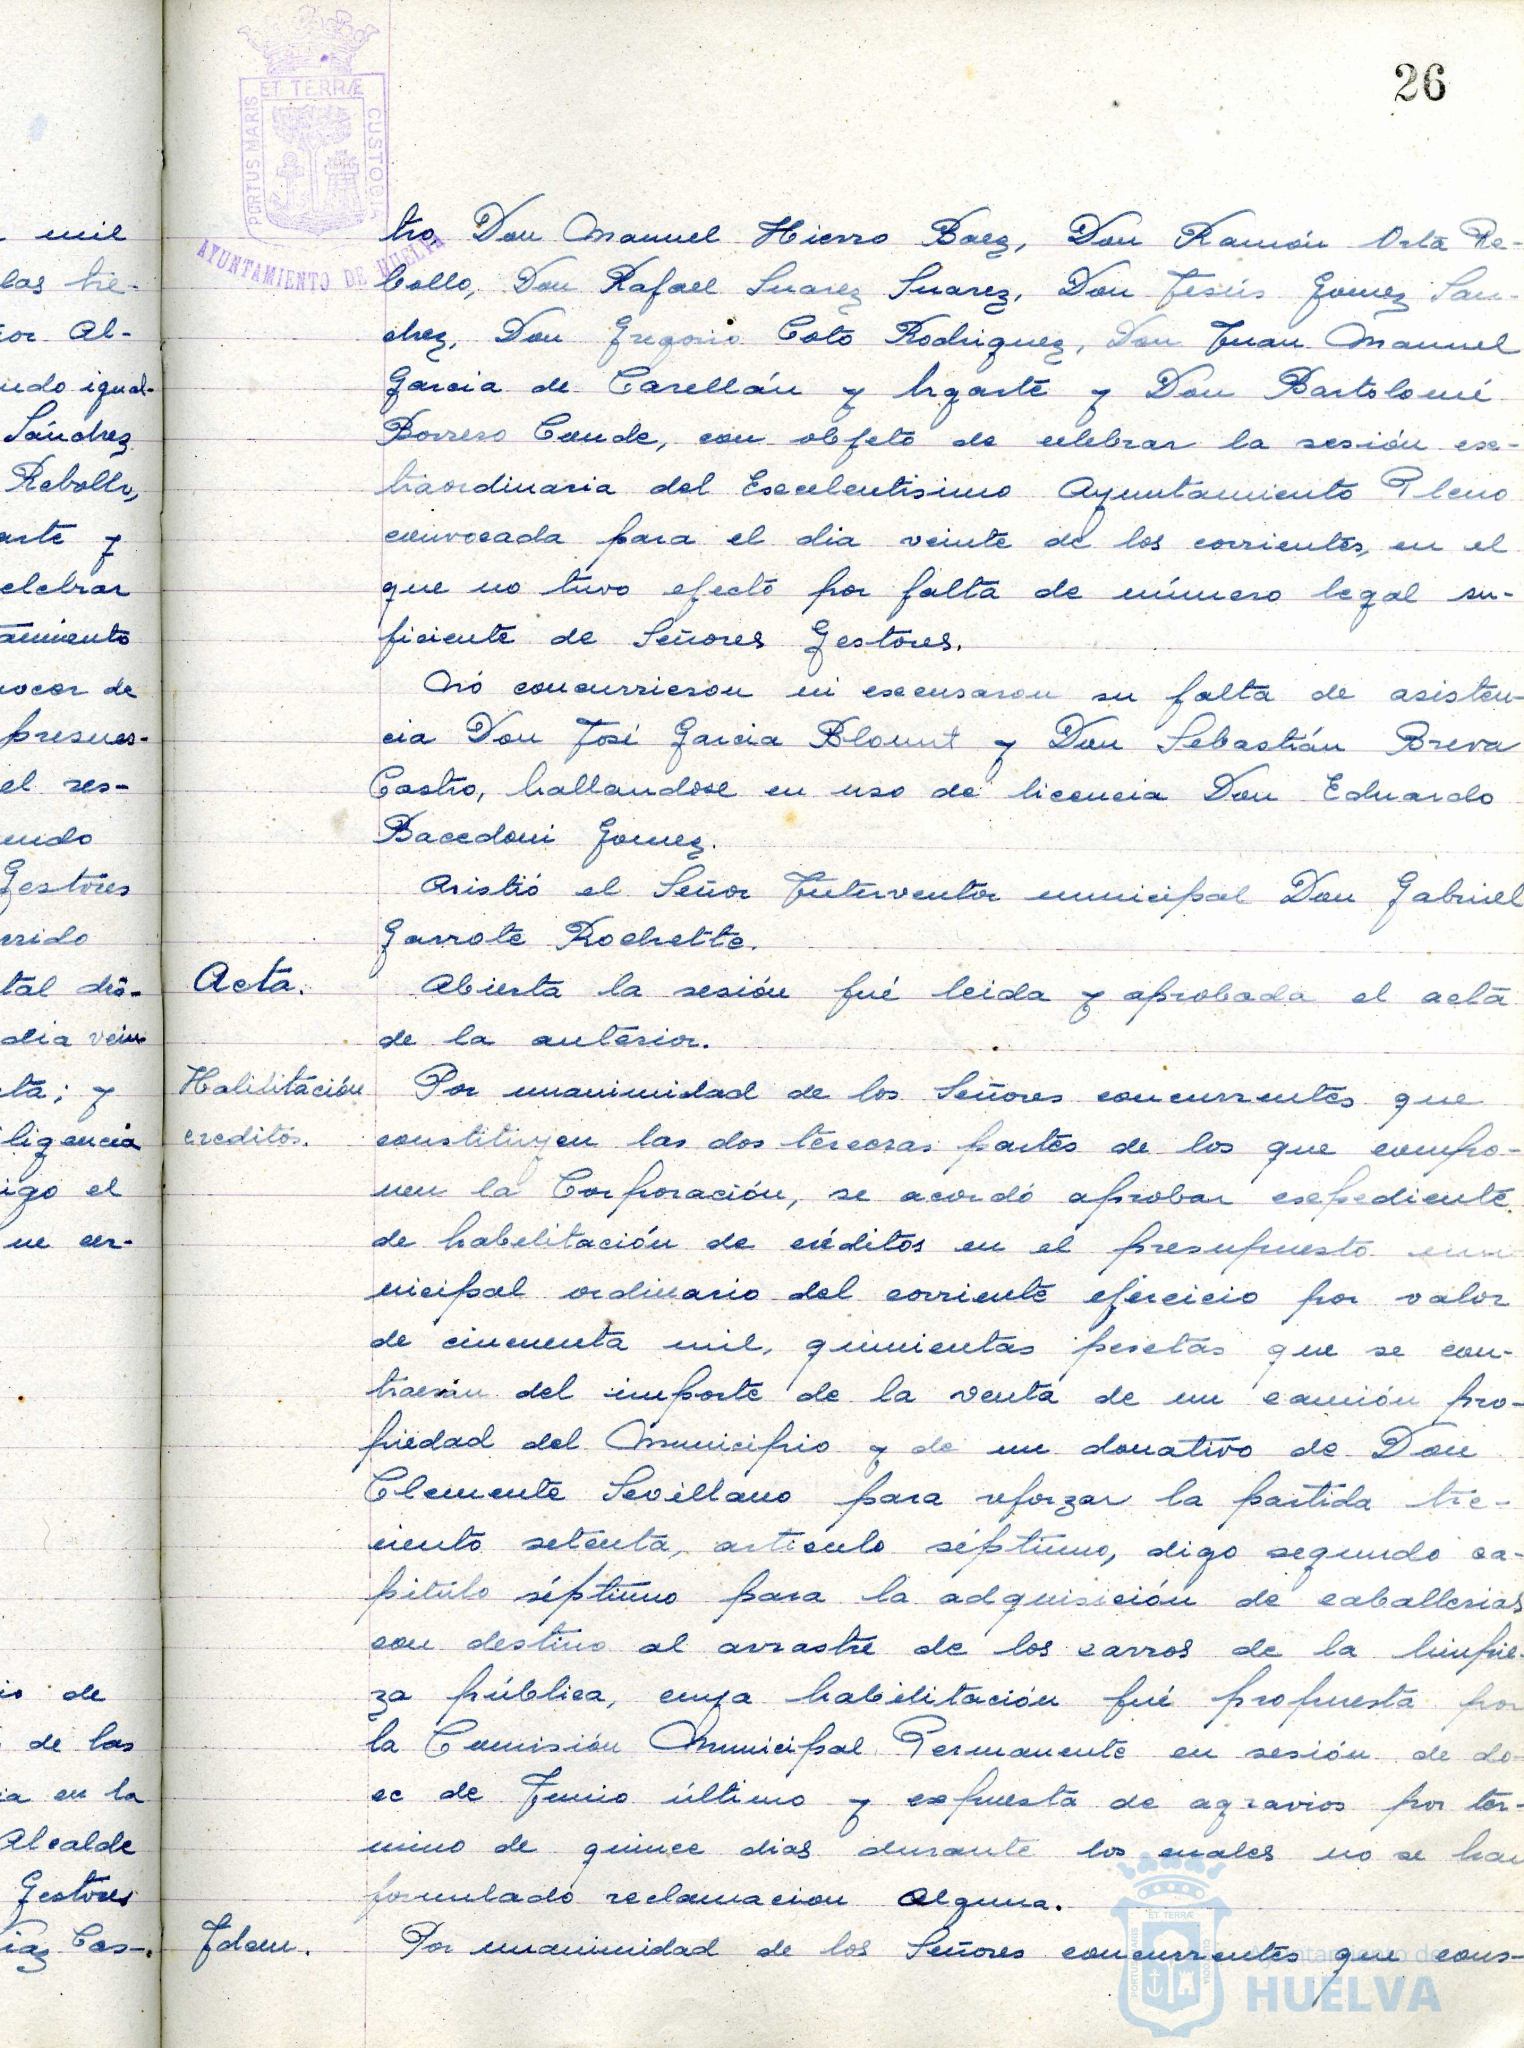 26
ET TERRÆ
PORTUS MARIS
CUSTODIA
AYUNTAMIENTO DE HUELVA
mil
las tre-
or Al-
ndo igual-
Sánchez
Rebollo,
arte y
elebrar
amiento
nocer de
presues-
el res-
endo
Gestores
rrido
tal dis-
dia vein
ta; y
ligencia
igo el
ue cer-
io de
de las
ia en la
Alcalde
Gestores
Díaz Cas-
tro, Don Manuel Hierro Baez, Don Ramón Orta Re-
bollo, Don Rafael Suarez Suarez, Don Jesús Gomez San-
chez, Don Gregorio Coto Rodriguez, Don Juan Manuel
Garcia de Carellán y Ugarte y Don Bartolomé
Borrero Conde, con objeto de celebrar la sesión ex-
traordinaria del Excelentisimo Ayuntamiento Pleno
convocada para el dia veinte de los corrientes, en el
que no tuvo efecto por falta de número legal su-
ficiente de Señores Gestores.
No concurrieron ni excusaron su falta de asisten-
cia Don José Garcia Blount y Don Sebastián Breva
Castro, hallandose en uso de licencia Don Eduardo
Bacedoni Gomez.
Asistió el Señor Interventor municipal Don Gabriel
Garrote Rochette.
Acta. Abierta la sesión fué leida y aprobada el acta
de la anterior.
Habilitación Por unanimidad de los Señores concurrentes que
creditos. constituyen las dos terceras partes de los que compo-
nen la Corporación, se acordó aprobar expediente
de habilitación de créditos en el presupuesto mu
nicipal ordinario del corriente ejercicio por valor
de cincuenta mil, quinientas pesetas que se con-
traerán del importe de la venta de un camión pro-
piedad del Municipio y de un donativo de Don
Clemente Sevillano para reforzar la partida tre-
ciento setenta, articulo séptimo, digo segundo ca-
pitulo séptimo para la adquisición de caballerias
con destino al arrastre de los carros de la limpie-
za pública, cuya habilitación fué propuesta por
la Comisión Municipal Permanente en sesión de do-
ce de Junio último y expuesta de agravios por ter-
mino de quince dias durante los cuales no se han
formulado reclamacion alguna.
Idem. Por unanimidad de los Señores concurrentes que cons-
Ayuntamiento de
HUELVA